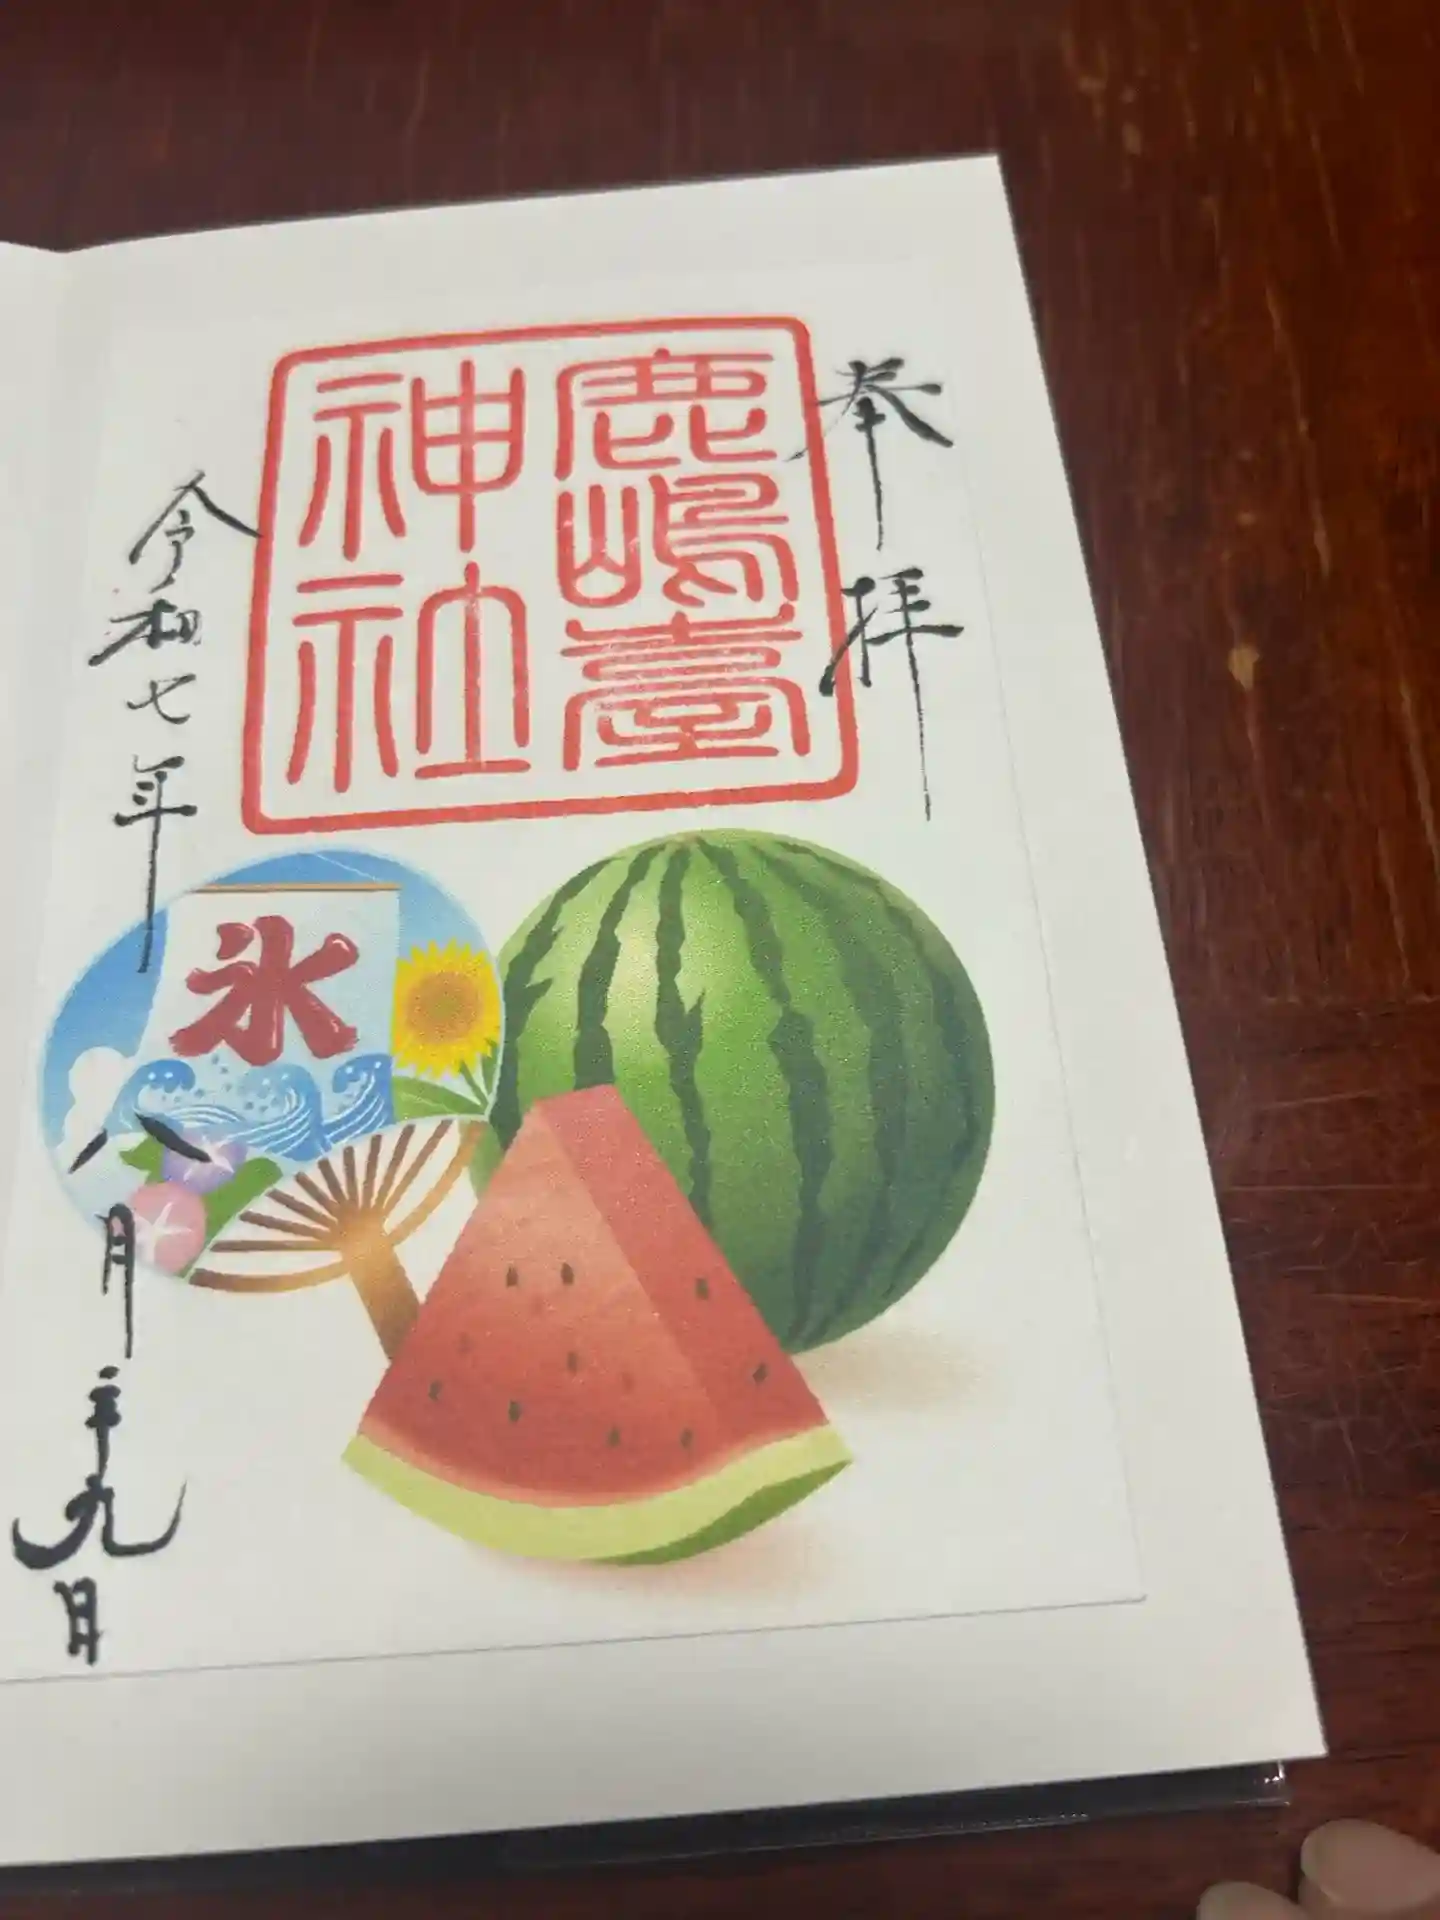 奉拝
鹿嶋臺
神社
令和七年
八月二十九日
氷